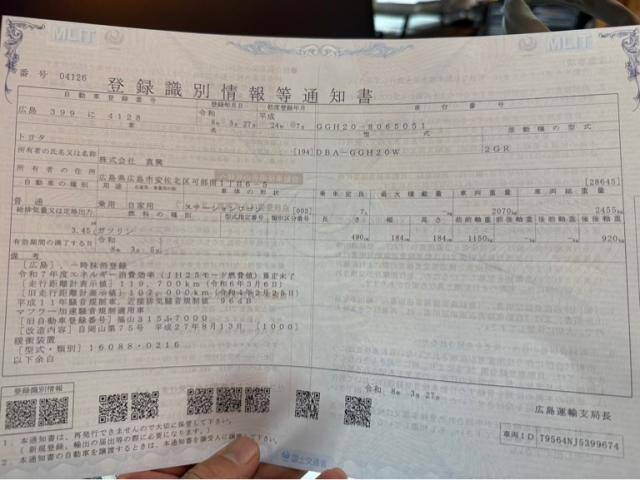 MLIT
MLIT
番号 04126
登録識別情報等通知書
自動車登録番号 登録年月日 初度登録年月 車台番号
広島 399 に 4128 令和 8年 3月27日 平成 24年 7月 GGH20-8065051
車名 型式 原動機の型式
トヨタ [194] DBA-GGH20W 2GR
所有者の氏名又は名称 株式会社 真興
所有者の住所 広島県広島市安佐北区可部南1丁目6-5 [28645]
自動車の種別 用途 車体の形状 乗車定員 最大積載量 車両重量 車両総重量
普通 乗用 自家用 ステーションワゴン [003] 7人 2070kg 2455kg
総排気量又は定格出力 燃料の種類 型式指定番号 類別区分番号 長さ 幅 高さ 前前軸重 前後軸重 後前軸重 後後軸重
3.45 ガソリン 490cm 184cm 184cm 1150kg -kg -kg 920kg
有効期間の満了する日 令和
備考
[広島] 一時抹消登録
令和7年度エネルギー消費効率(JH25モード燃費値)算定未了
[走行距離計表示値] 119,700km(令和6年3月6日)
[旧走行距離計表示値] 107,000km(令和4年2月25日)
平成11年騒音規制車、近接排気騒音規制値 96dB
マフラー加速騒音規制適用車
[旧自動車登録番号] 福山315ふ7000
[改造内容] 自岡山第75号 平成27年8月13日 [1000]
緩衝装置
[型式・類別] 16088・0216
以下余白
登録識別情報
令和 8年 3月27日
広島運輸支局長
1.本通知書は、再発行できませんので大切に保管して下さい。
(新規登録、輸出の届出等の際に必要になります。)
2.本通知書の自動車を譲渡するときは、本通知書を譲受人に譲渡して下さい。
国土交通省
車両ID T9564NJ5399674